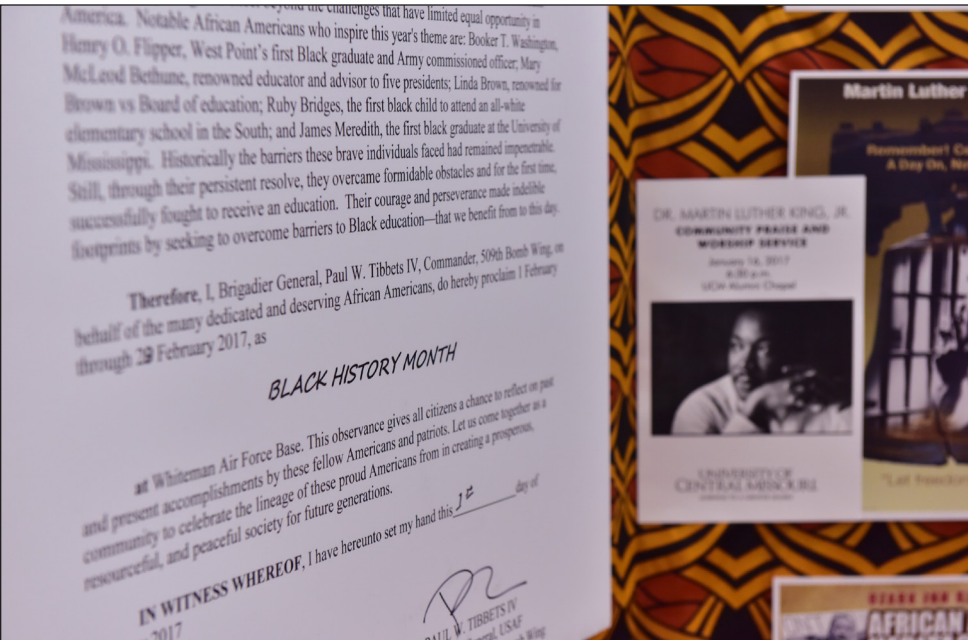 beyond the challenges that have limited equal opportunity in
America. Notable African Americans who inspire this year's theme are: Booker T. Washington,
Henry O. Flipper, West Point's first Black graduate and Army commissioned officer; Mary
McLeod Bethune, renowned educator and advisor to five presidents; Linda Brown, renowned for
Brown vs Board of education; Ruby Bridges, the first black child to attend an all-white
elementary school in the South; and James Meredith, the first black graduate at the University of
Mississippi. Historically the barriers these brave individuals faced had remained impenetrable.
Still, through their persistent resolve, they overcame formidable obstacles and for the first time,
successfully fought to receive an education. Their courage and perseverance made indelible
footprints by seeking to overcome barriers to Black education—that we benefit from to this day.
Therefore, I, Brigadier General, Paul W. Tibbets IV, Commander, 509th Bomb Wing, on
behalf of the many dedicated and deserving African Americans, do hereby proclaim 1 February
through 29 February 2017, as
BLACK HISTORY MONTH
at Whiteman Air Force Base. This observance gives all citizens a chance to reflect on past
and present accomplishments by these fellow Americans and patriots. Let us come together as a
community to celebrate the lineage of these proud Americans from in creating a prosperous,
resourceful, and peaceful society for future generations.
IN WITNESS WHEREOF, I have hereunto set my hand this 1st day of
2017
PAUL W. TIBBETS IV
General, USAF
Wing
Martin Luther
Remember!
A Day On,
DR. MARTIN LUTHER KING, JR.
COMMUNITY PRAISE AND
WORSHIP SERVICE
January 16, 2017
6:30 p.m.
UCM Alumni Chapel
UNIVERSITY OF
CENTRAL MISSOURI
"Let freedom
AFRICAN